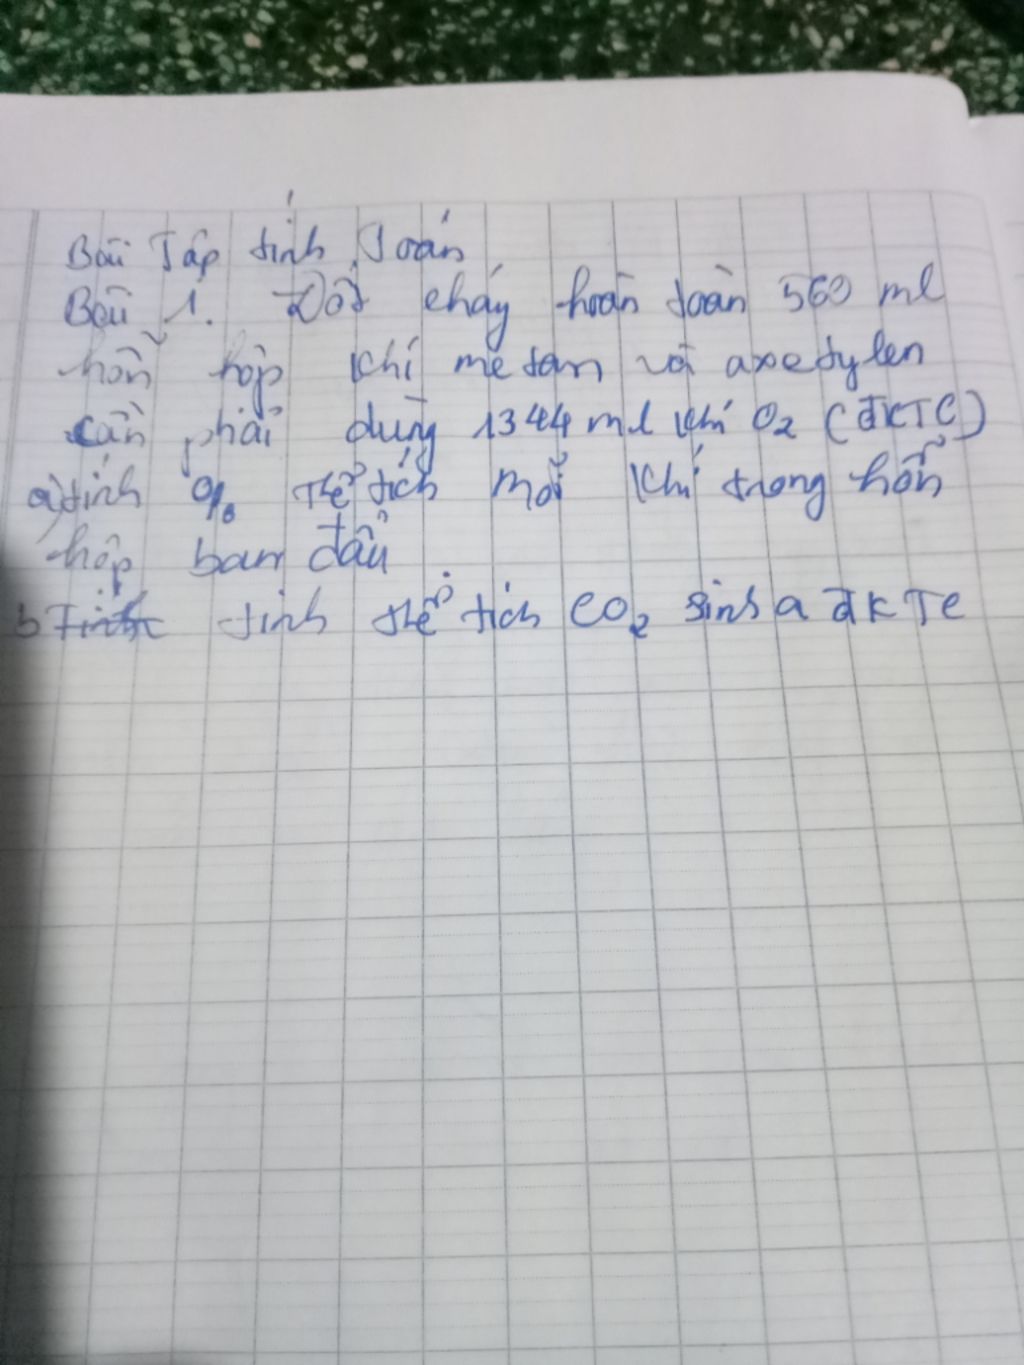 Bài Tập tính Toán
Bài 1. Đốt cháy hoàn toàn 560 ml
hỗn hợp khí metan và axetylen
cần phải dùng 1344 ml khí O₂ (ĐKTC)
a) tính % thể tích mỗi khí trong hỗn
hợp ban đầu
b tính thể tích CO₂ sinh a ĐKTC